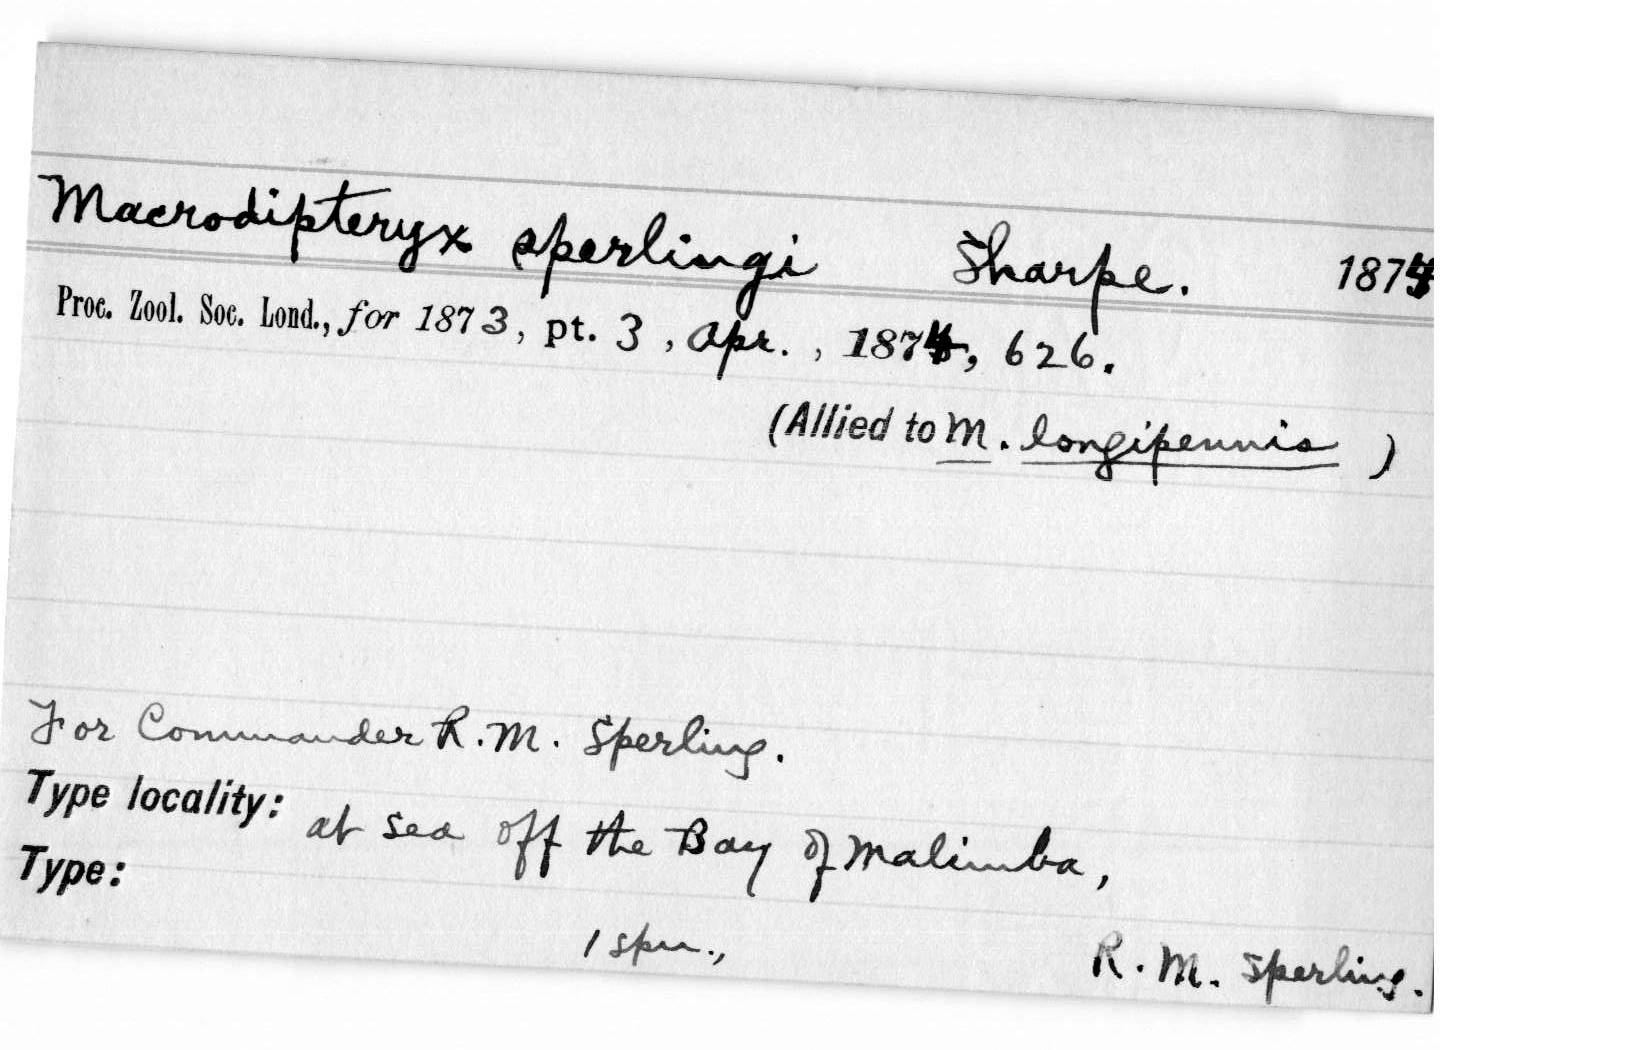 Macrodipteryx sperlingi Sharpe. 1874
Proc. Zool. Soc. Lond., for 1873, pt. 3, Apr., 1874, 626.
(Allied to M. longipennis )
For Commander R. M. Sperling.
Type locality: at sea off the Bay of Malimba,
Type:
1 spm., R. M. Sperling.